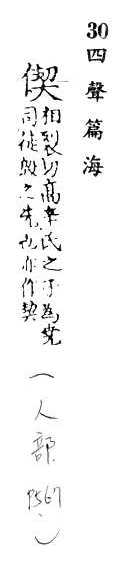 30 四聲篇海
偰 相裂切高辛氏之子為堯
司徒殷之先也亦作契
(人部 P567)